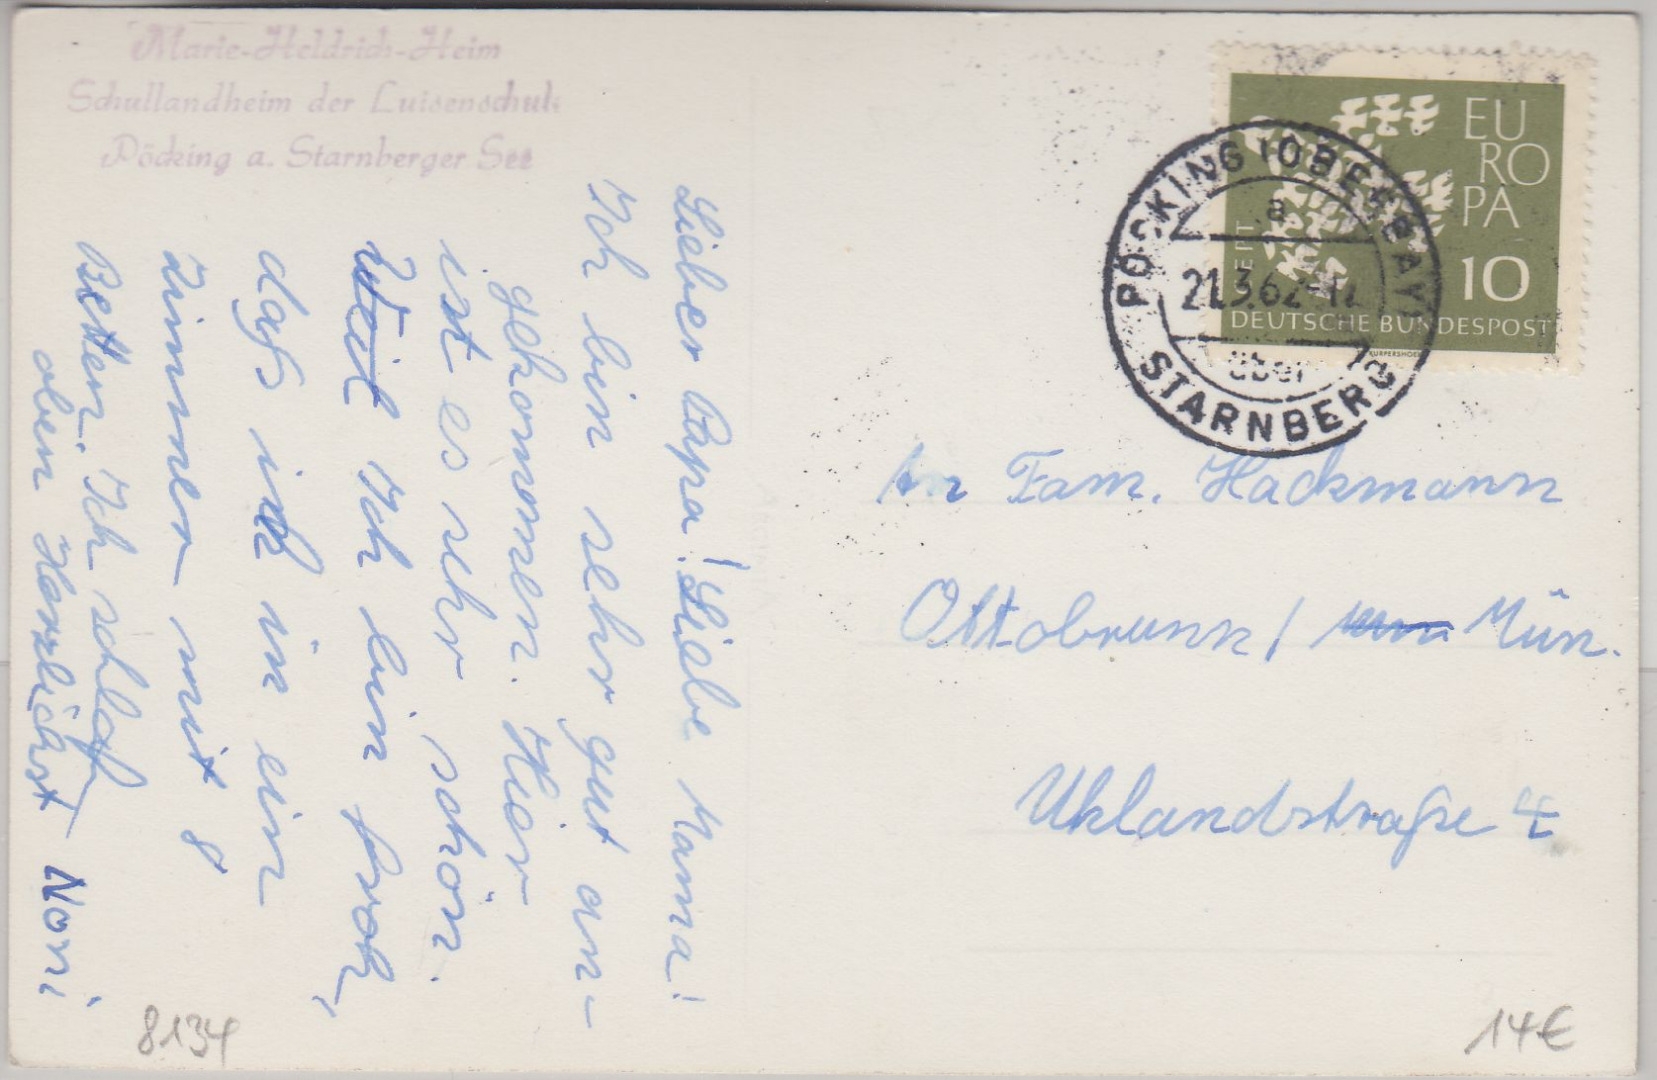 Marie-Heldrich-Heim
Schullandheim der Luisenschule
Pöcking a. Starnberger See
Lieber Papa! Liebe Mama!
Ich bin sehr gut an-
gekommen. Hier
ist es sehr schön.
Weil Ich bin froh,
daß ich in ein
Zimmer mit 8
Betten. Ich schlaf
oben Herzlichst Noni
8134
EU
RO
PA
CEPT
10
DEUTSCHE BUNDESPOST
KURPERSHOEK
PÖCKING (OBERBAY)
a
21.3.62-17
über
STARNBERG
An Fam. Hackmann
Ottobrunn / Mün.
Uhlandstraße 4
14€